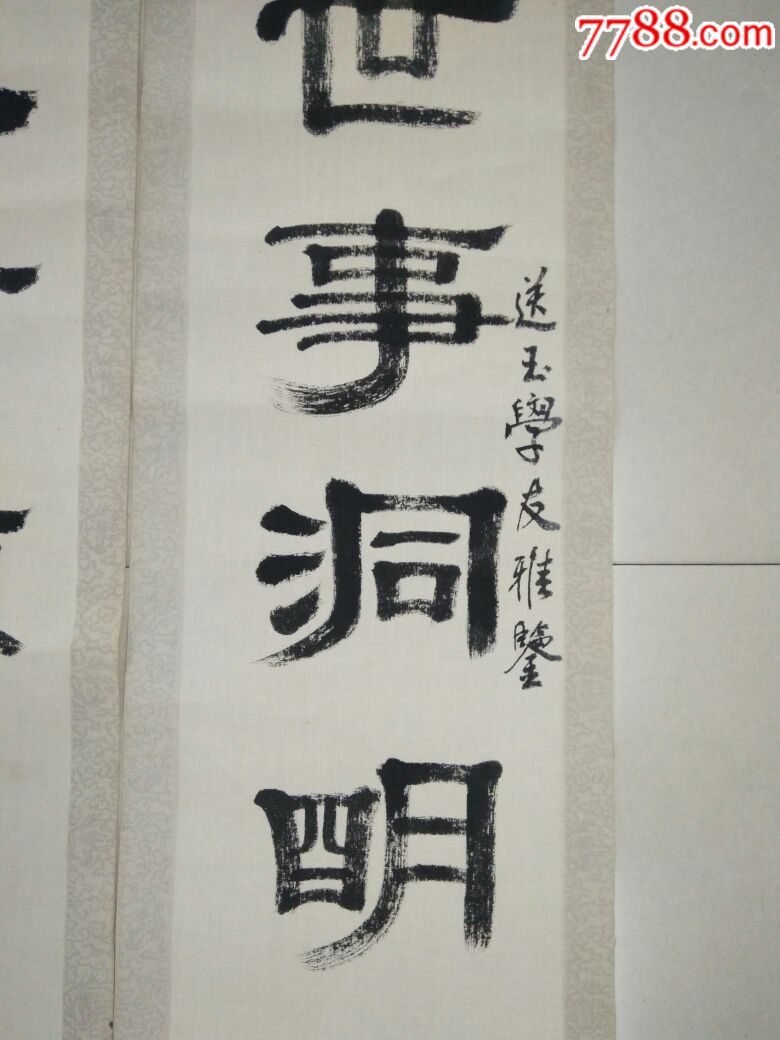 7788.com
世事洞明
送玉學友雅鑒